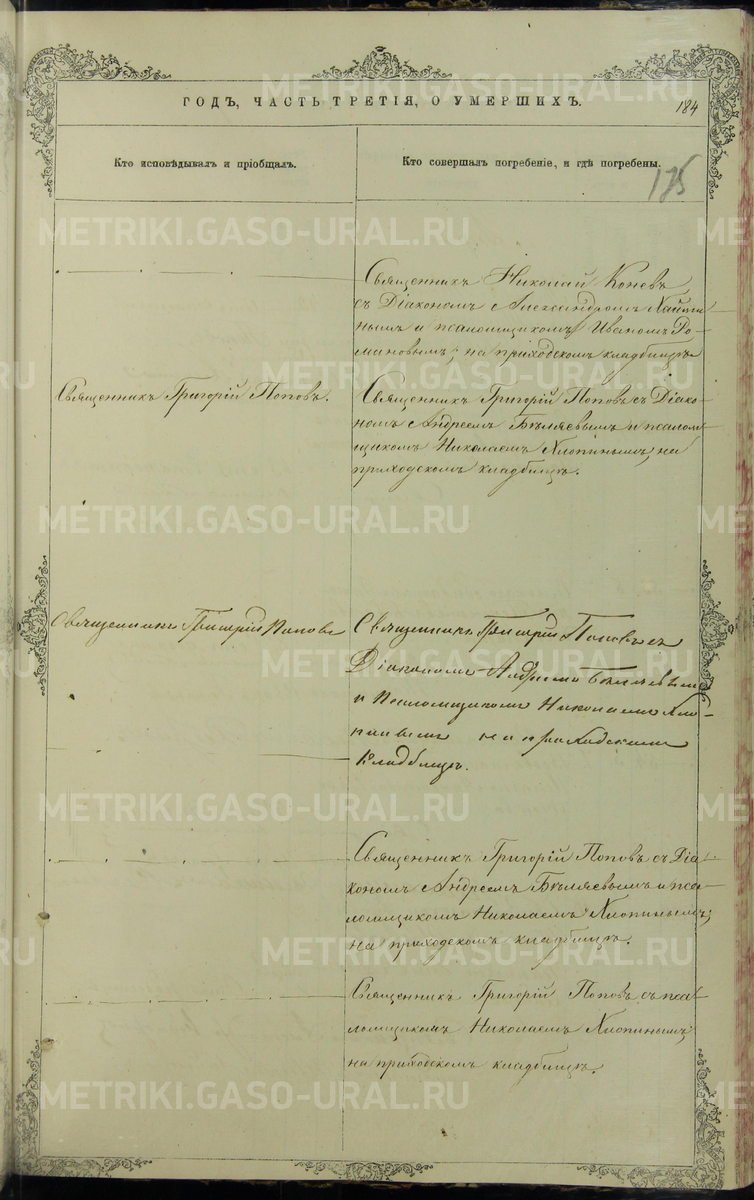 ГОДЪ, ЧАСТЬ ТРЕТІЯ, О УМЕРШИХЪ.
184
Кто исповѣдывалъ и пріобщалъ.
Кто совершалъ погребеніе, и гдѣ погребены.
175
Священникъ Николай Коневъ
съ Діакономъ Александромъ
нымъ и псаломщикомъ Иваномъ Ро-
мановымъ; на приходскомъ кладбищѣ
Священникъ Григорій Поповъ.
Священникъ Григорій Поповъ съ Діако-
номъ Андреемъ Бѣляевымъ и псалом-
щикомъ Николаемъ Хлопинымъ, на
приходскомъ кладбищѣ.
Священникъ Григорій Поповъ
Священникъ Григорій Поповъ съ
Діакономъ Андреемъ Бѣляевымъ
и Псаломщикомъ Николаемъ Хло-
пинымъ на приходскомъ
Кладбищѣ.
Священникъ Григорій Поповъ съ Діа-
кономъ Андреемъ Бѣляевымъ и пса-
ломщикомъ Николаемъ Хлопинымъ;
на приходскомъ кладбищѣ.
Священникъ Григорій Поповъ съ пса-
ломщикомъ Николаемъ Хлопинымъ,
на приходскомъ кладбищѣ.
METRIKI.GASO-URAL.RU